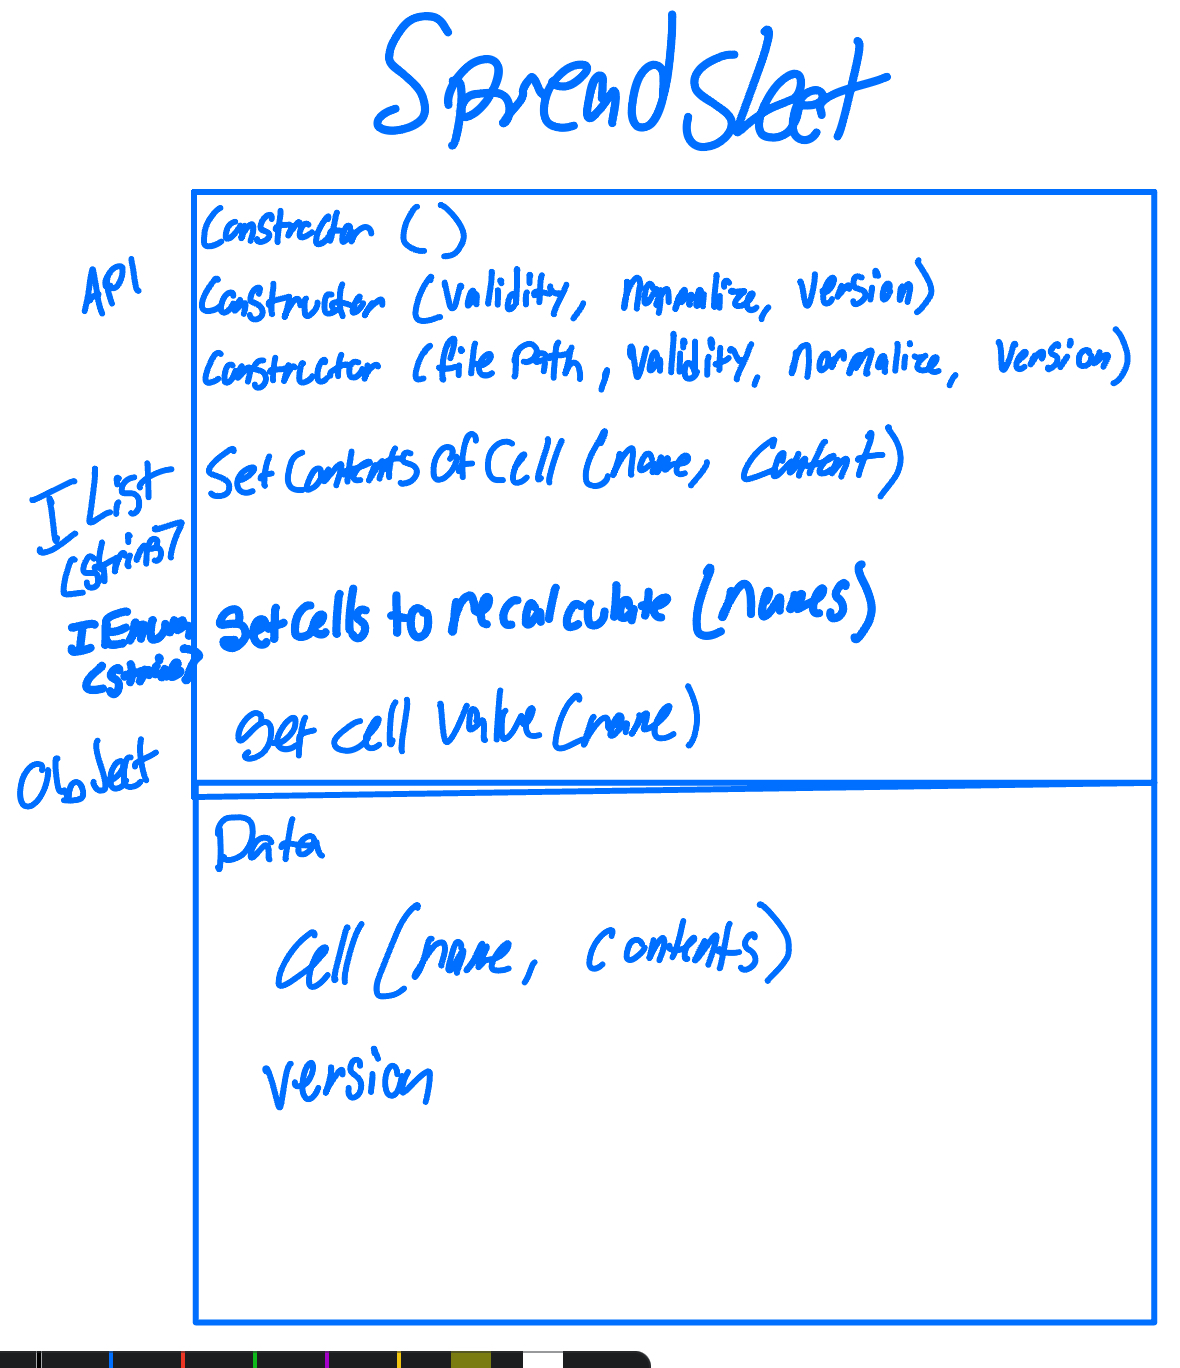 Spreadsheet
Constructor ()
API
Constructor (validity, normalize, version)
Constructor (file Path, validity, normalize, version)
IList
<string>
Set Contents Of Cell (name, content)
IEnum
<string>
Get cells to recalculate (names)
Object
get cell value (name)
Data
Cell (name, contents)
version